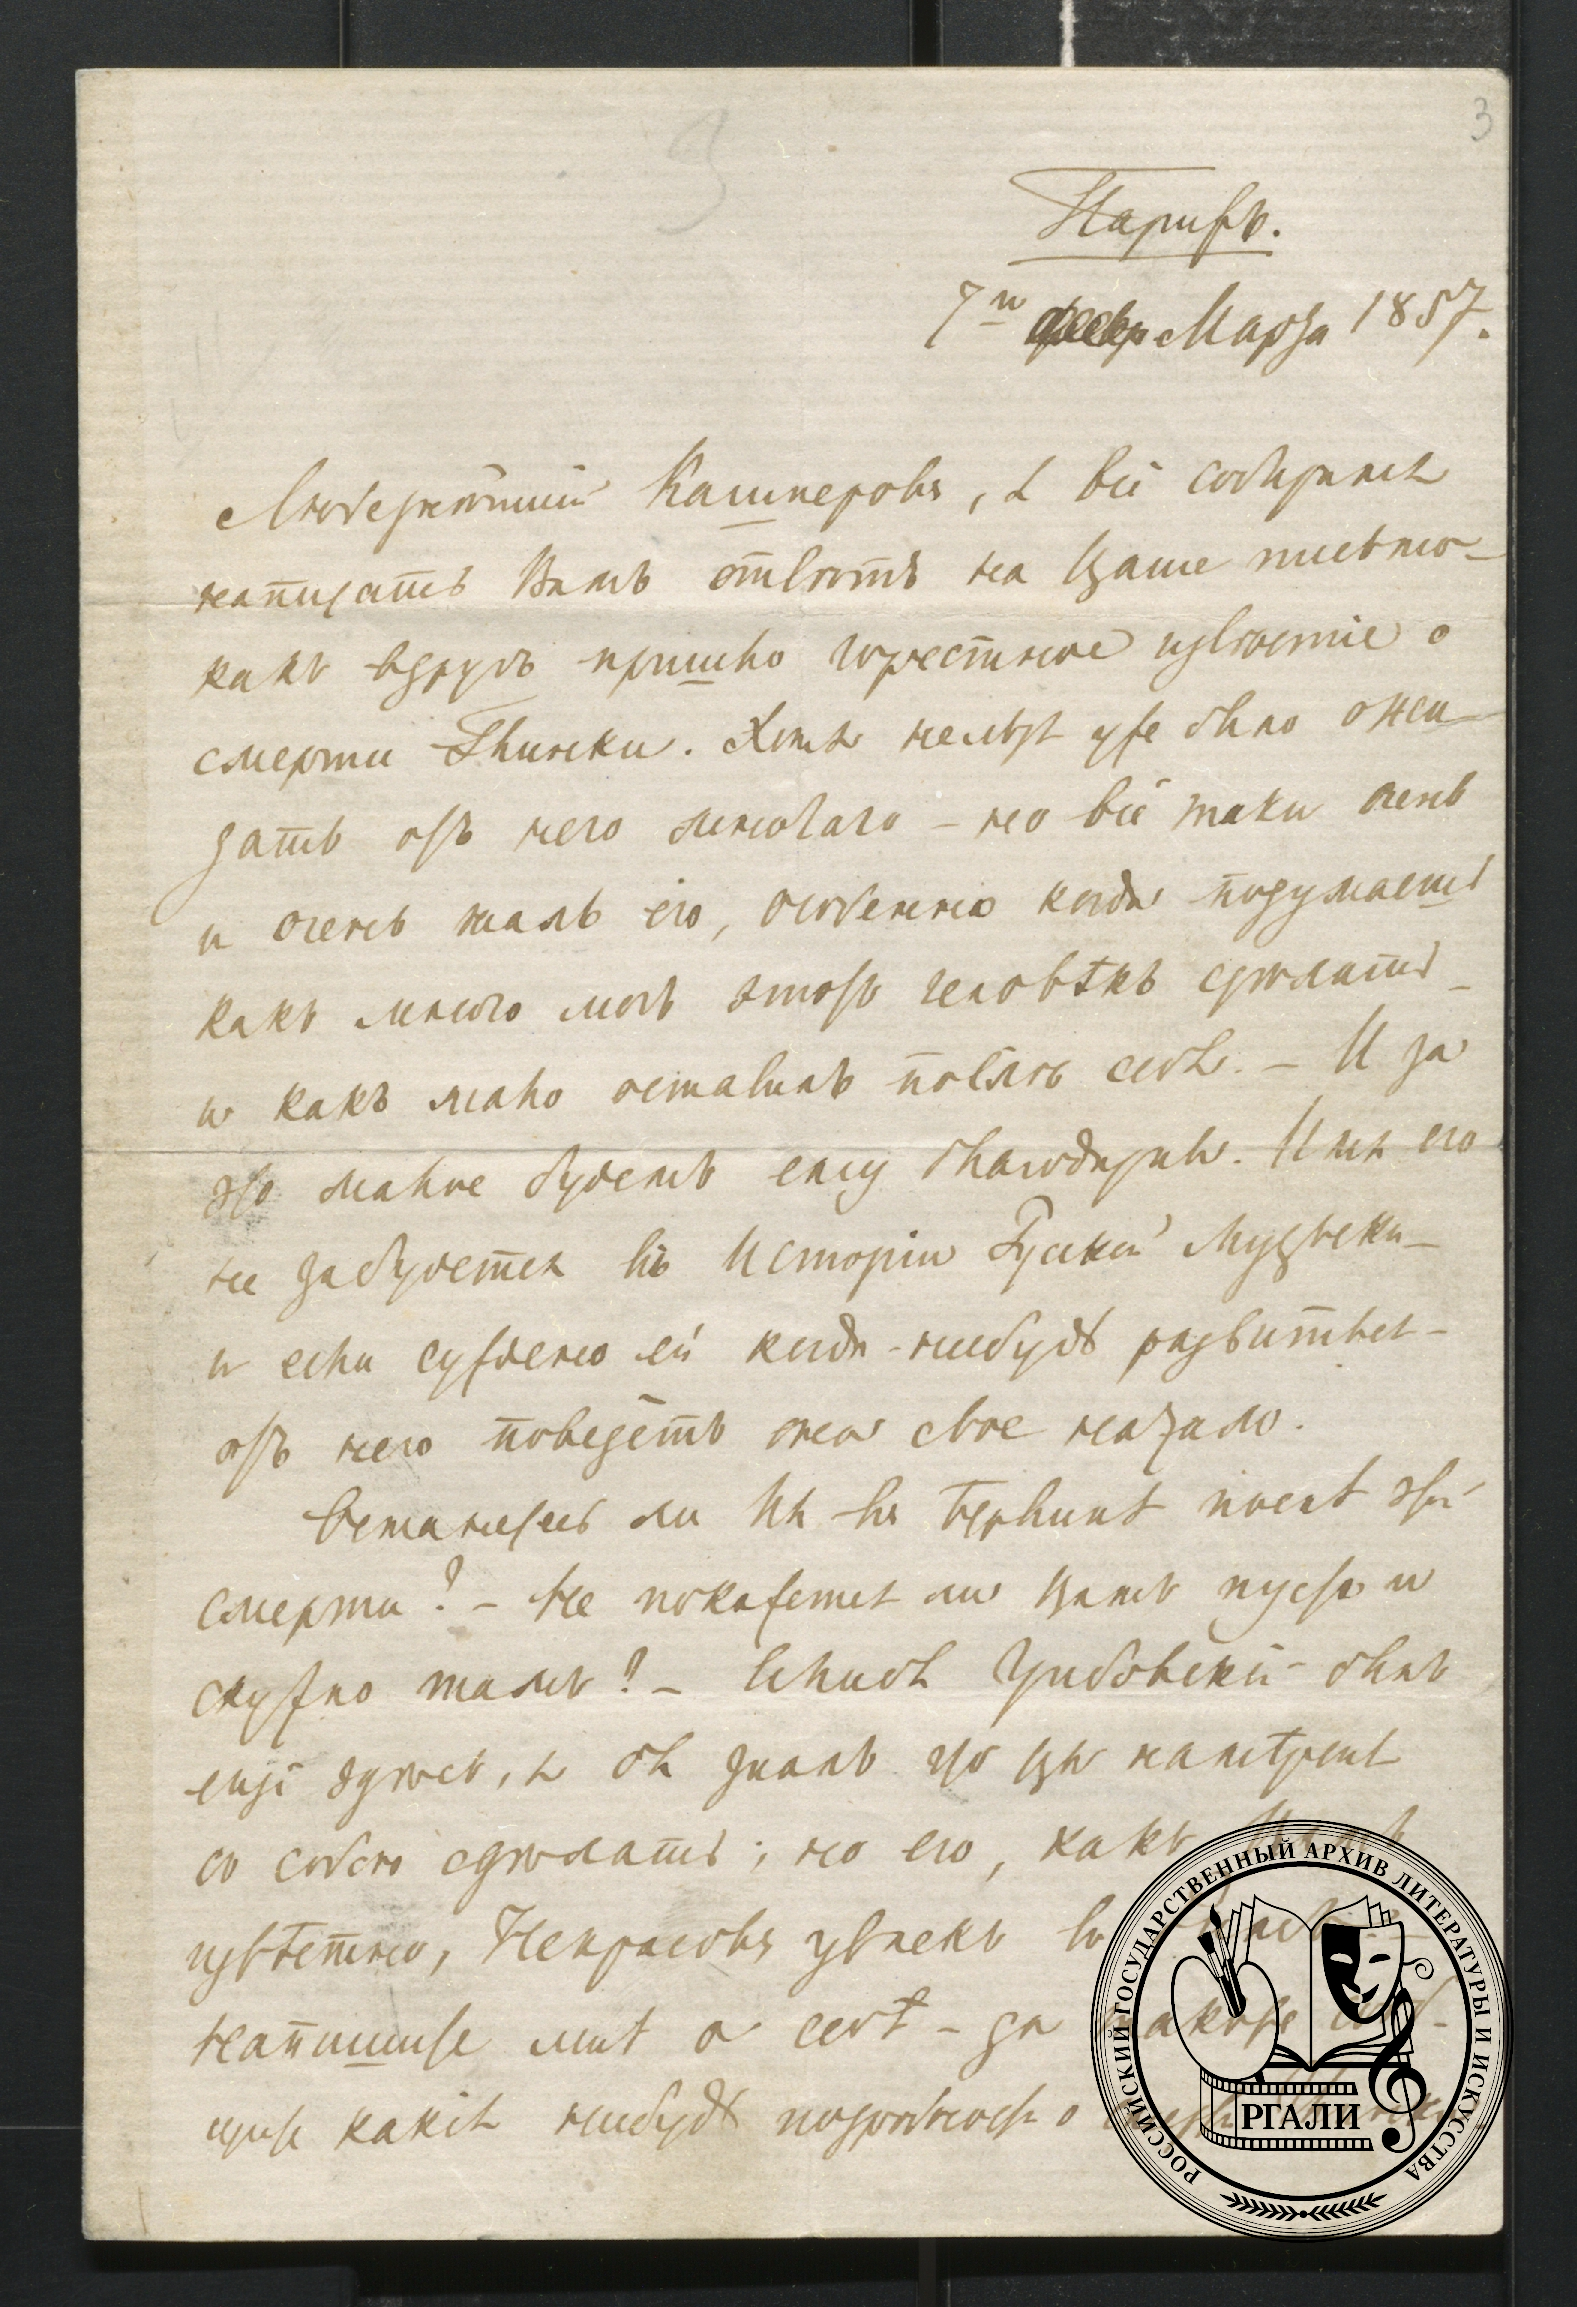 3
Парижъ.
7го Марта 1857.
Любезнѣйшій Кашперовъ, я всё собирался
написать Вамъ отвѣтъ на Ваше письмо –
какъ вдругъ пришло горестное извѣстіе о
смерти Глинки. Хотя нельзя уже было ожи-
дать отъ него многаго – но всё таки очень
и очень жаль его, особенно когда подумаешь
какъ много могъ этотъ человѣкъ сдѣлать –
и какъ мало оставилъ послѣ себя. – И за
это малое будемъ ему благодарны. Имя его
не забудется въ Исторіи Русской Музыки –
и если суждено ей когда-нибудь развиться –
отъ него поведётъ она свое начало.
Останетесь ли Вы въ Берлинѣ послѣ этой
смерти? – Не покажется ли Вамъ пусто и
скучно тамъ? – Еслибъ былъ
ещё здѣсь, я бы зналъ что Вы намѣрены
съ собою сдѣлать; но его, какъ Вамъ
извѣстно, Некрасовъ увлекъ въ
Напишите мнѣ о себѣ – да также сооб-
щите какія нибудь подробности о смерти Глинки
РОССИЙСКИЙ ГОСУДАРСТВЕННЫЙ АРХИВ ЛИТЕРАТУРЫ И ИСКУССТВА
РГАЛИ